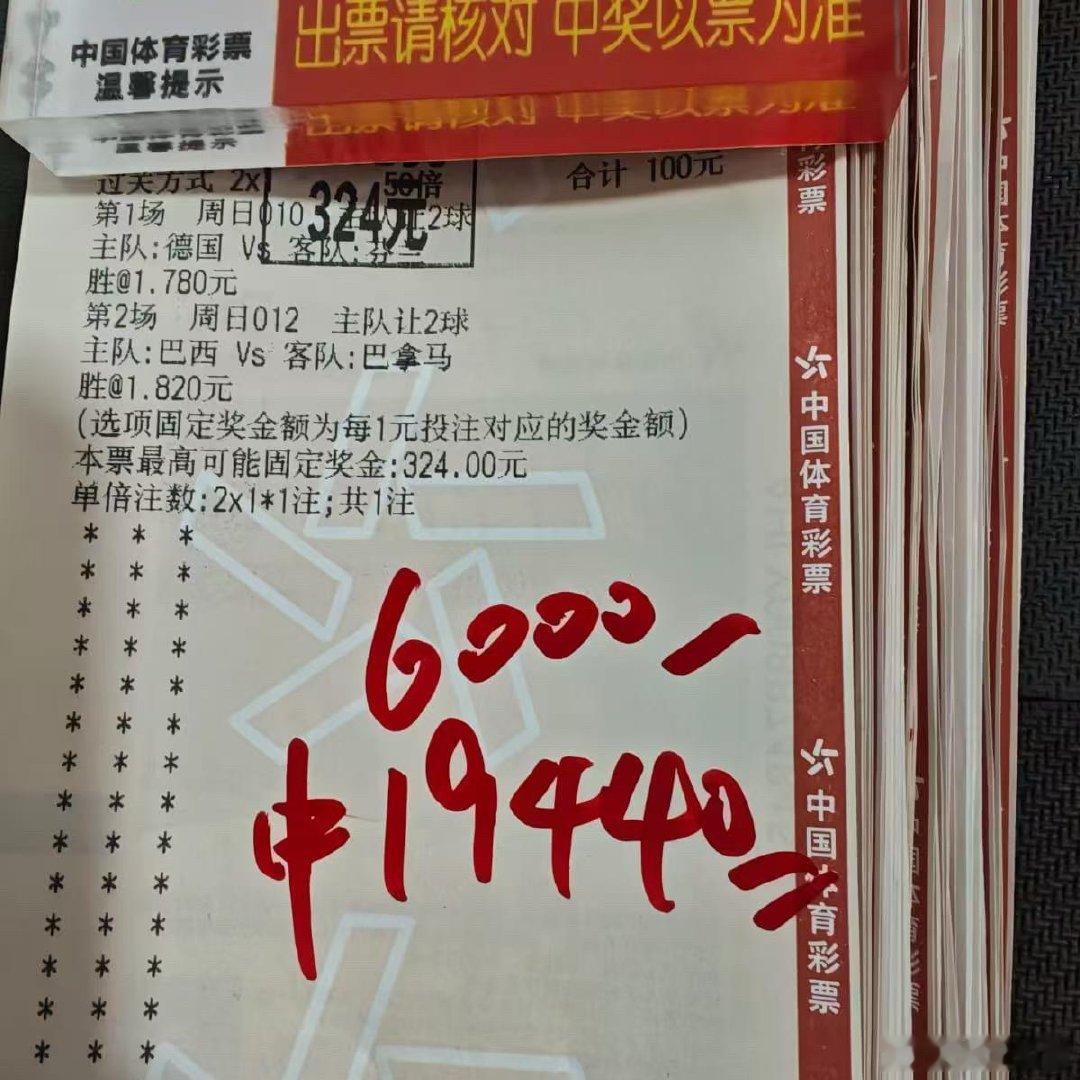 中国体育彩票
温馨提示
出票请核对 中奖以票为准
过关方式 2x
50倍
合计 100元
324元
第1场 周日010 主队让2球
主队:德国 Vs 客队:芬兰
胜@1.780元
第2场 周日012 主队让2球
主队:巴西 Vs 客队:巴拿马
胜@1.820元
(选项固定奖金额为每1元投注对应的奖金额)
本票最高可能固定奖金:324.00元
单倍注数:2x1*1注;共1注
* * *
* * *
* * *
* * *
* * *
* * *
* * *
* * *
* * *
* * *
* * *
* * *
* * *
* * *
6000-
中19440=
彩票
中国体育彩票
中国体育彩票
中国体育彩票